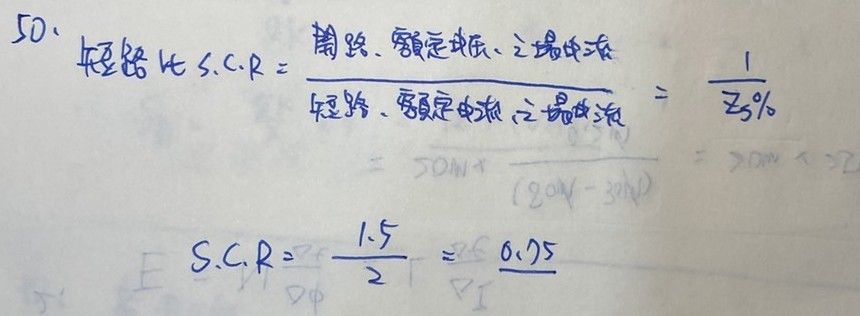 50.
短路比 S.C.R = 開路、額定電压、之場电流 / 短路、額定电流、之場电流 = 1 / Zs%
S.C.R = 1.5 / 2 = 0.75